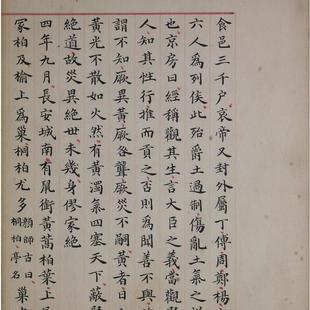 食邑三千户哀帝又封外屬丁傅周鄭楊
六人為列侯此殆爵土過制傷亂土氣之
也京房曰經稱觀其生言大臣之義當觀
人知其性行推而貢之否則為聞善不與
謂不知厥異黃厥咎聾厥災不嗣黃者日
黃光不散如火然有黃濁氣四塞天下蔽
絕道故災異絕世未幾身僇家絕
四年九月長安城南有鼠銜黃蒿柏葉上
冢柏及榆上為巢桐柏尤多顏師古曰桐柏亭名巢